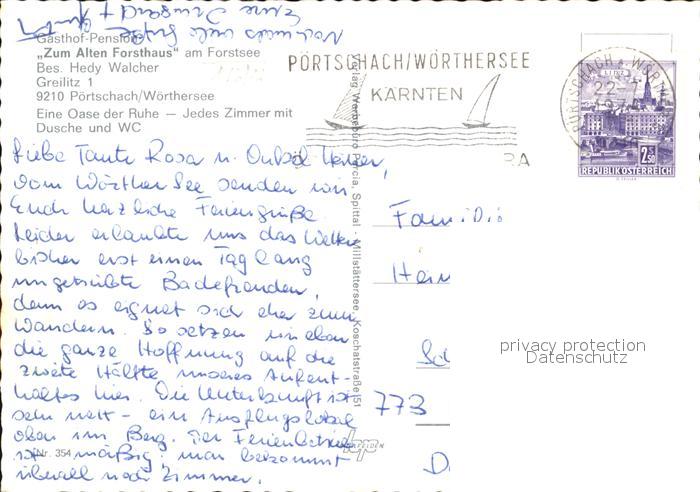 Gasthof-Pension
„Zum Alten Forsthaus" am Forstsee
Bes. Hedy Walcher
Greilitz 1
9210 Pörtschach/Wörthersee
Eine Oase der Ruhe — Jedes Zimmer mit
Dusche und WC
PÖRTSCHACH/WÖRTHERSEE
KÄRNTEN
22-7
LINZ
2.50
REPUBLIK ÖSTERREICH
Liebe Tante Rosa u. Onkel
vom Wörther See senden wir
Euch herzliche Feriengrüße.
Leider erlaubte uns das Wetter
bisher erst einen Tag lang
ungetrübte Badefreuden,
denn es eignet sich eher zum
Wandern. So setzen wir eben
die ganze Hoffnung auf die
zweite Hälfte unseres Aufent-
haltes hier. Die Unterkunft ist
sehr nett - ein Ausflugslokal
oben im Berg. Der Ferienbetrieb
ist mäßig; man bekommt
überall noch Zimmer.
Nochmals viele Grüße
Eure
Nr. 354
Spittal · Millstättersee, Koschatstraße 51
Famili
Hein
773
D
privacy protection
Datenschutz